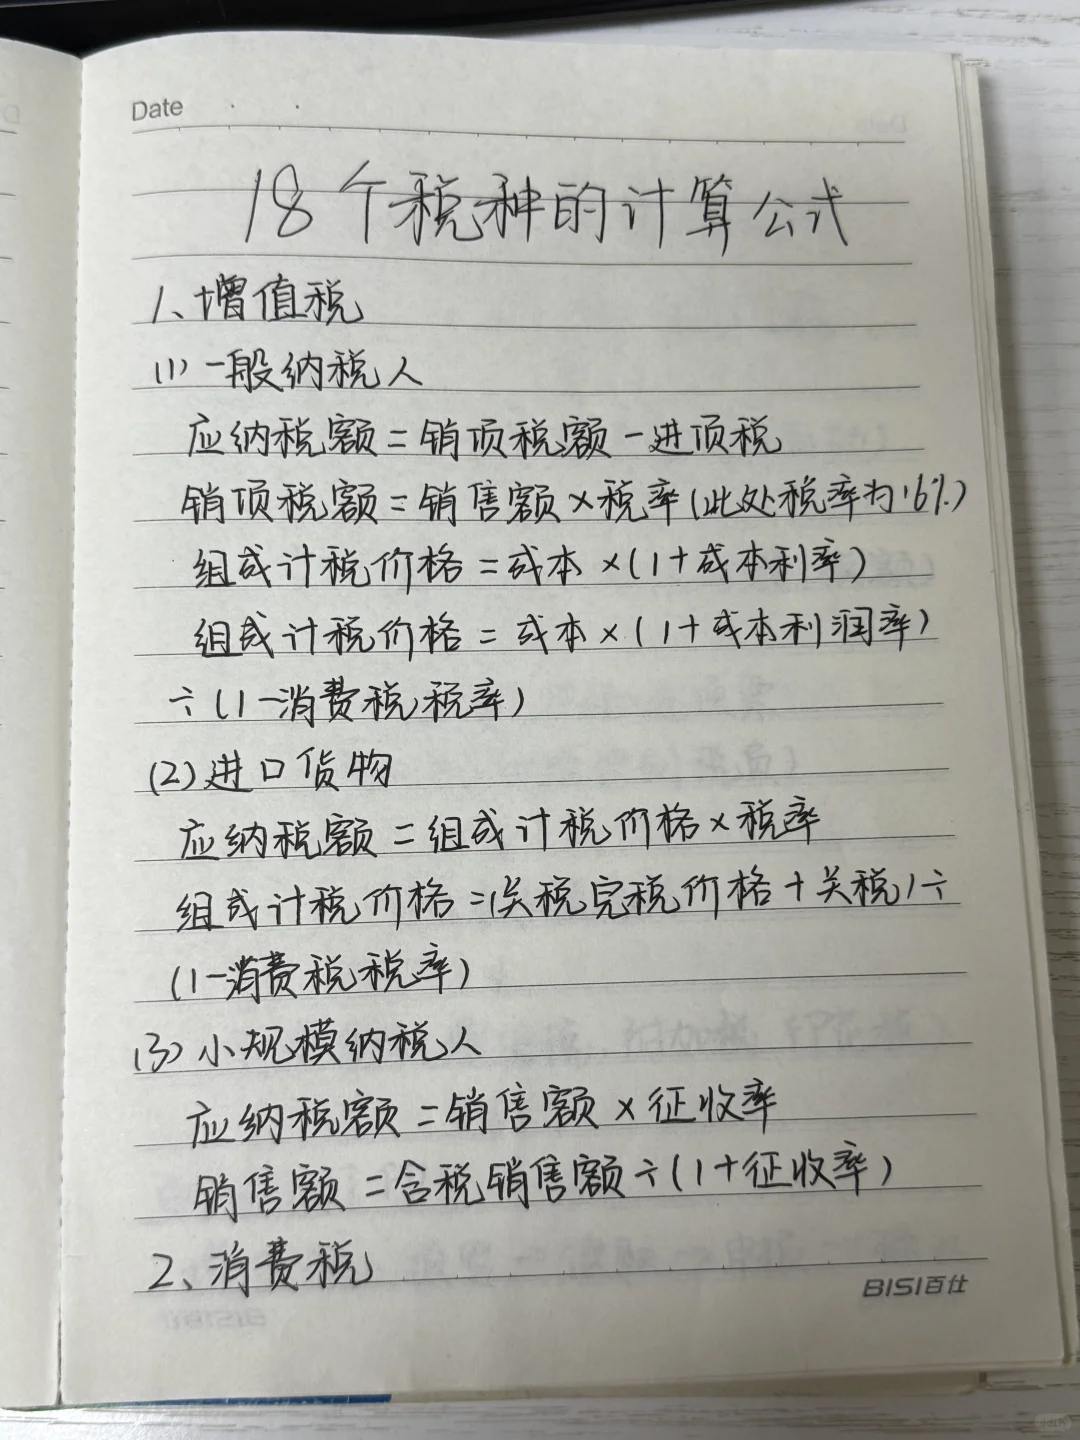 Date
18个税种的计算公式
1、增值税
(1)一般纳税人
应纳税额=销项税额-进项税
销项税额=销售额×税率(此处税率为16%)
组成计税价格=成本×(1+成本利率)
组成计税价格=成本×(1+成本利润率)
÷(1-消费税税率)
(2)进口货物
应纳税额=组成计税价格×税率
组成计税价格=(关税完税价格+关税)÷
(1-消费税税率)
(3)小规模纳税人
应纳税额=销售额×征收率
销售额=含税销售额÷(1+征收率)
2、消费税
BISI百仕